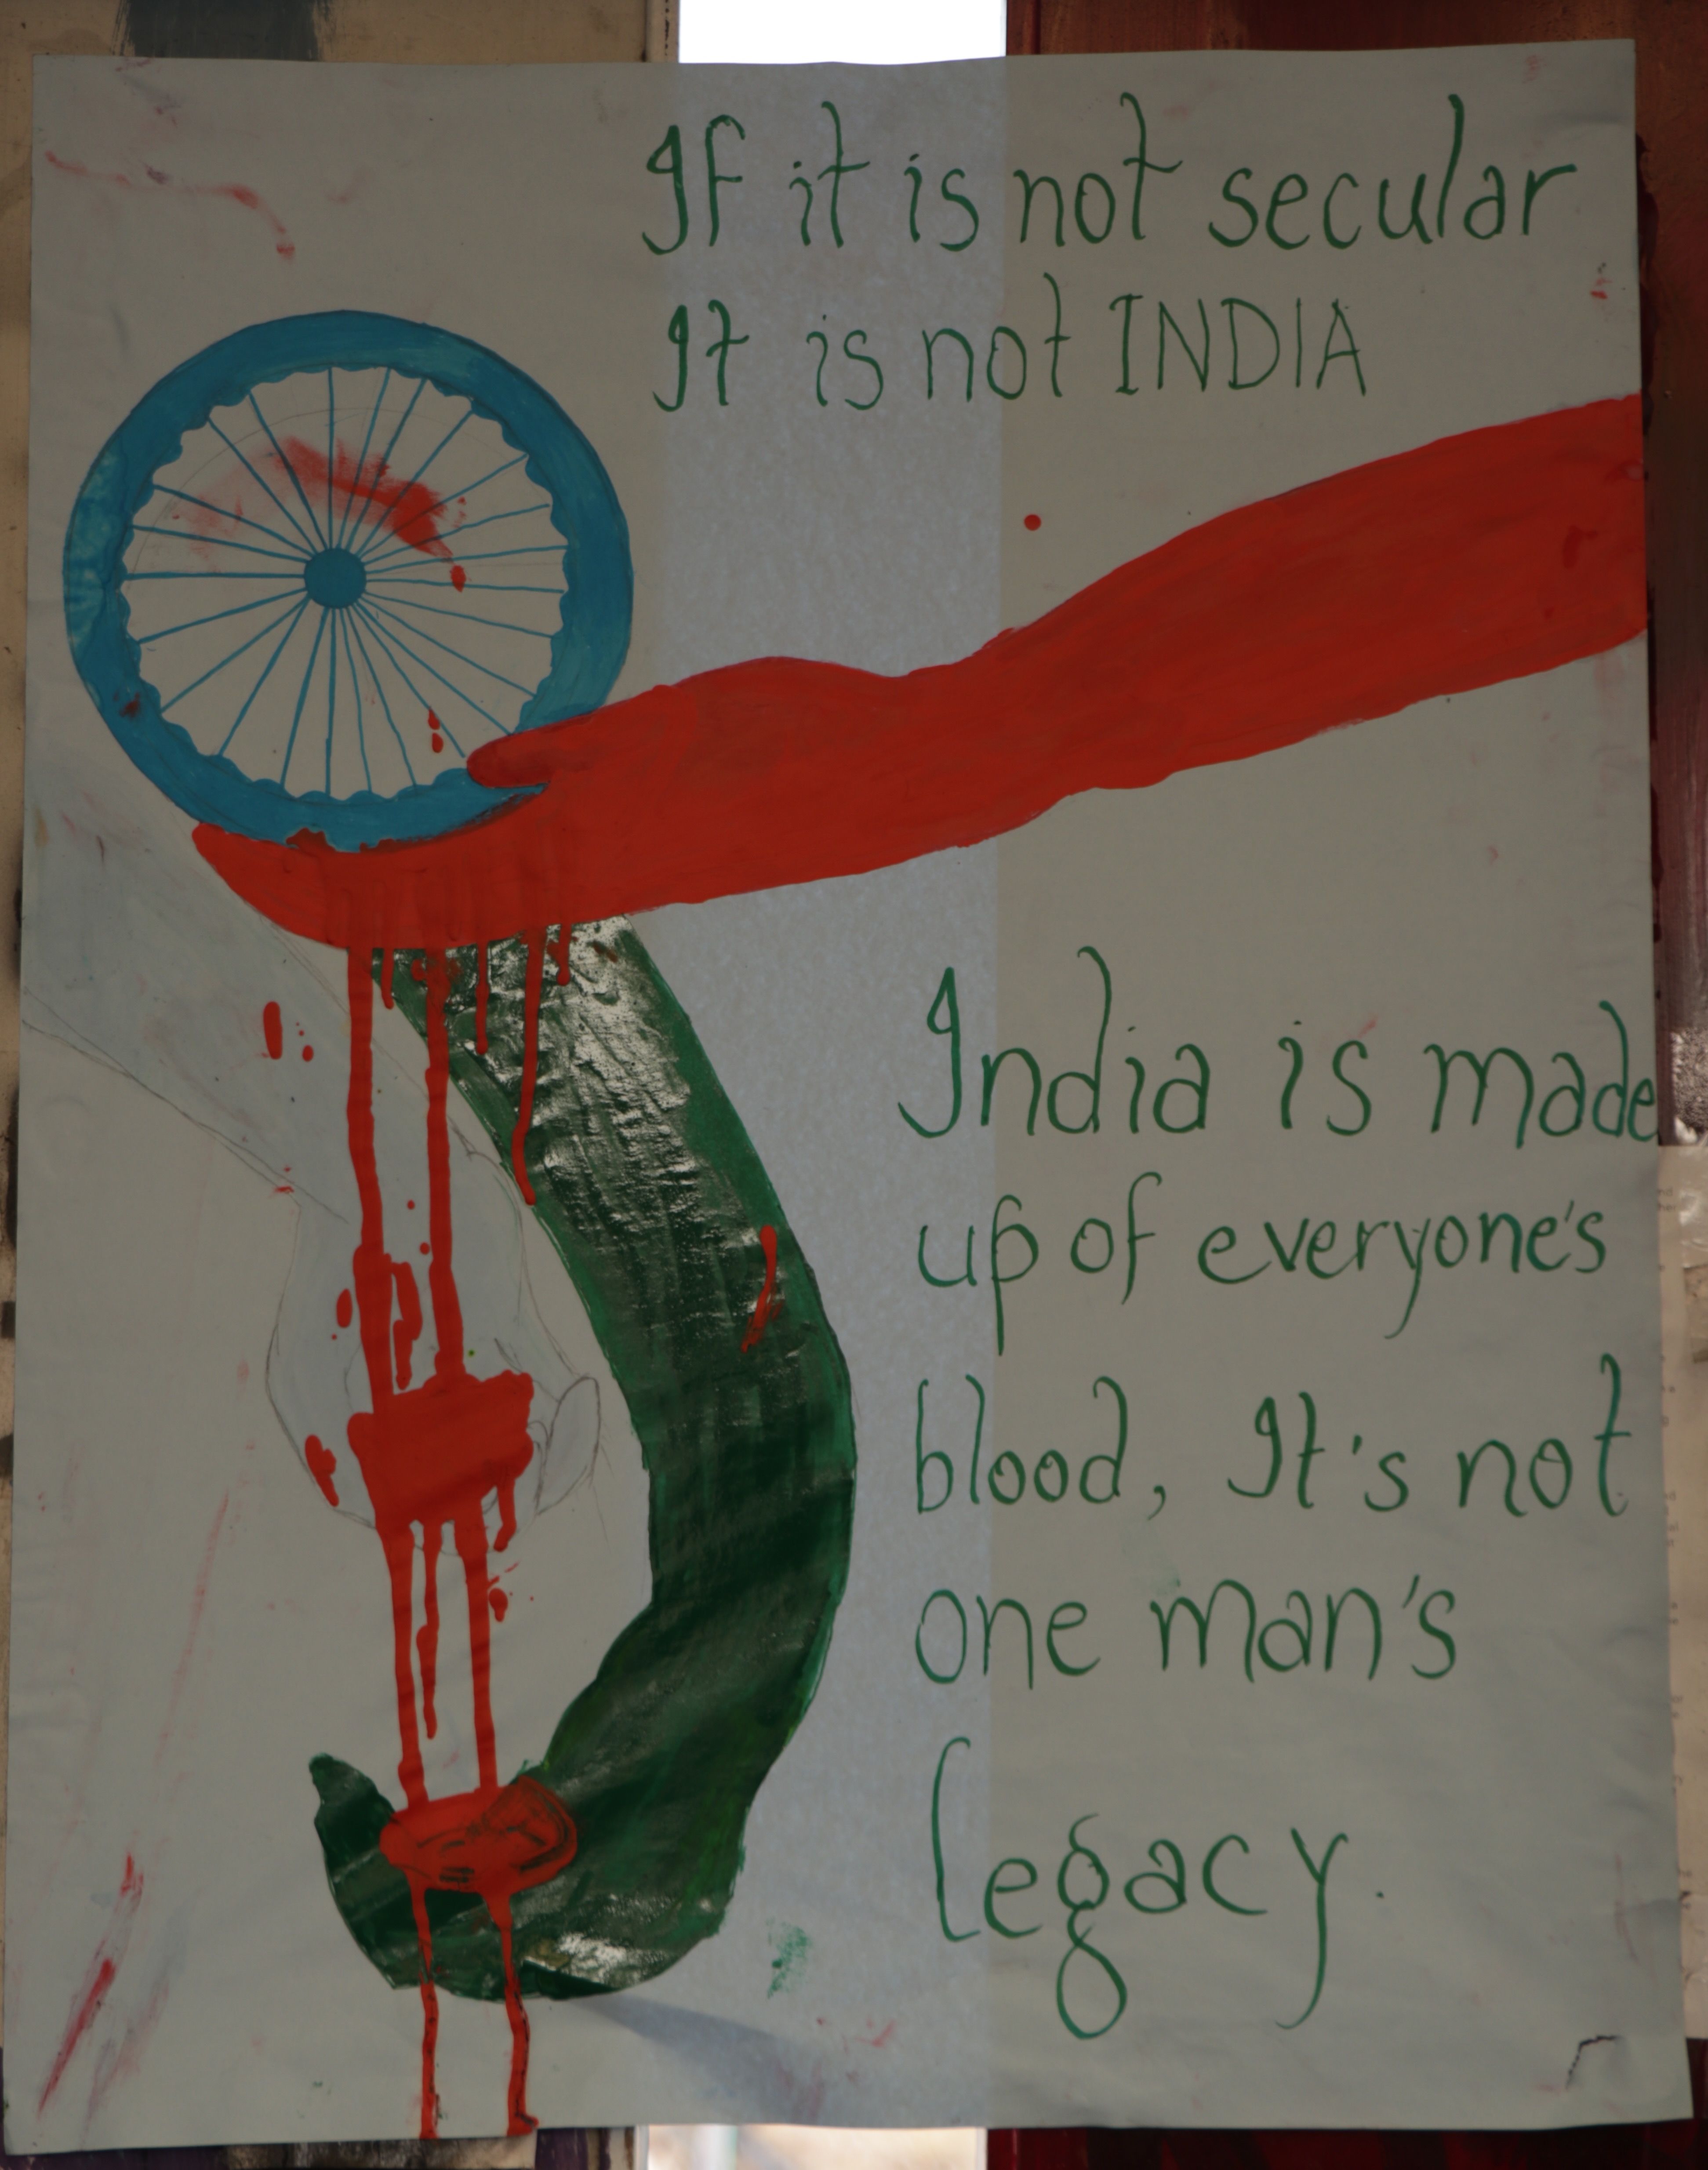 If it is not secular
It is not INDIA
India is made
up of everyone's
blood, It's not
one man's
legacy.